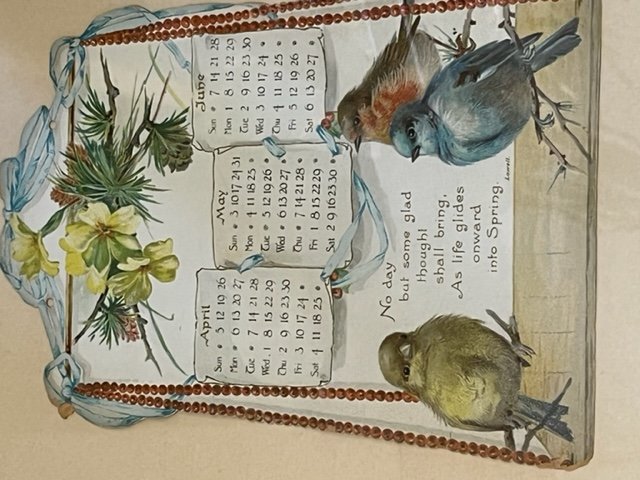 April
Sun • 5 12 19 26
Mon • 6 13 20 27
Tue • 7 14 21 28
Wed. 1 8 15 22 29
Thu 2 9 16 23 30
Fri 3 10 17 24 •
Sat 4 11 18 25 •
May
Sun • 3 10 17 24 31
Mon • 4 11 18 25 •
Tue • 5 12 19 26 •
Wed • 6 13 20 27 •
Thu • 7 14 21 28 •
Fri 1 8 15 22 29 •
Sat 2 9 16 23 30 •
June
Sun • 7 14 21 28
Mon 1 8 15 22 29
Tue 2 9 16 23 30
Wed 3 10 17 24 •
Thu 4 11 18 25 •
Fri 5 12 19 26 •
Sat 6 13 20 27 •
No day
but some glad
thought
shall bring,
As life glides
onward
into Spring.